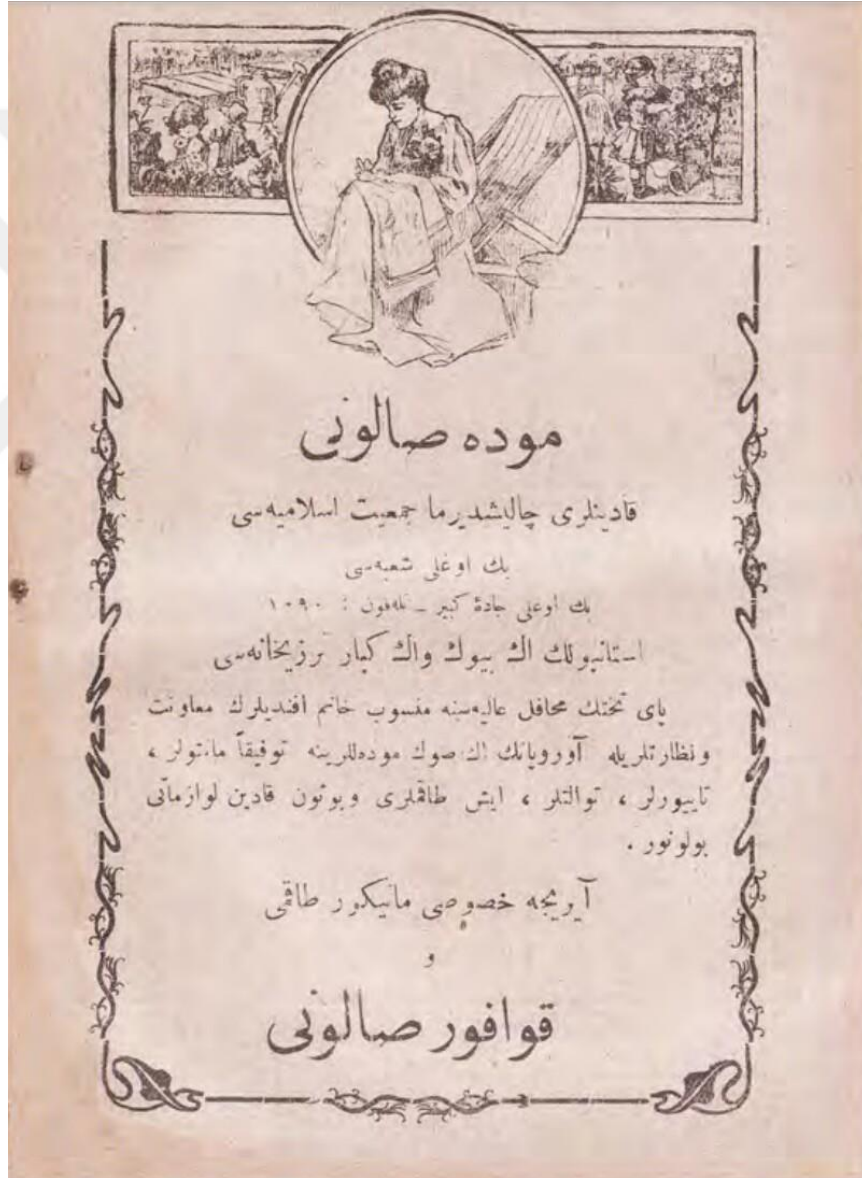 موده صالونى
قادينلرى چاليشديرما جمعيت اسلاميه‌سى
بك اوغلى شعبه‌سى
بك اوغلى جادۀ كبير ـ تله‌فون : ١٠٩٠
استانبولك اڭ بيوك واڭ كبار ترزيخانه‌سى
پاى تختك محافل عاليه‌سنه منسوب خانم افنديلرك معاونت
و نظارتلريله آوروپانك اڭ صوك موده‌للرينه توفيقاً مانتولر ،
تاييورلر ، توالتلر ، ايش طاقملرى وبوتون قادين لوازماتى
بولونور .
آيريجه خصوصى مانيكور طاقمى
و
قوافور صالونى